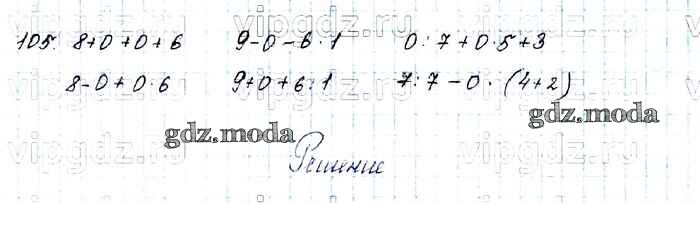 vipgdz.ru vipgdz.ru vipgdz.ru
105. 8+0+0+6 9-0-6·1 0:7+0·5+3
8-0+0·6 9+0+6:1 7:7-0·(4+2)
gdz.moda gdz.moda
vipgdz.ru vipgdz.ru vipgdz.ru
Решение
vipgdz.ru vipgdz.ru vipgdz.ru